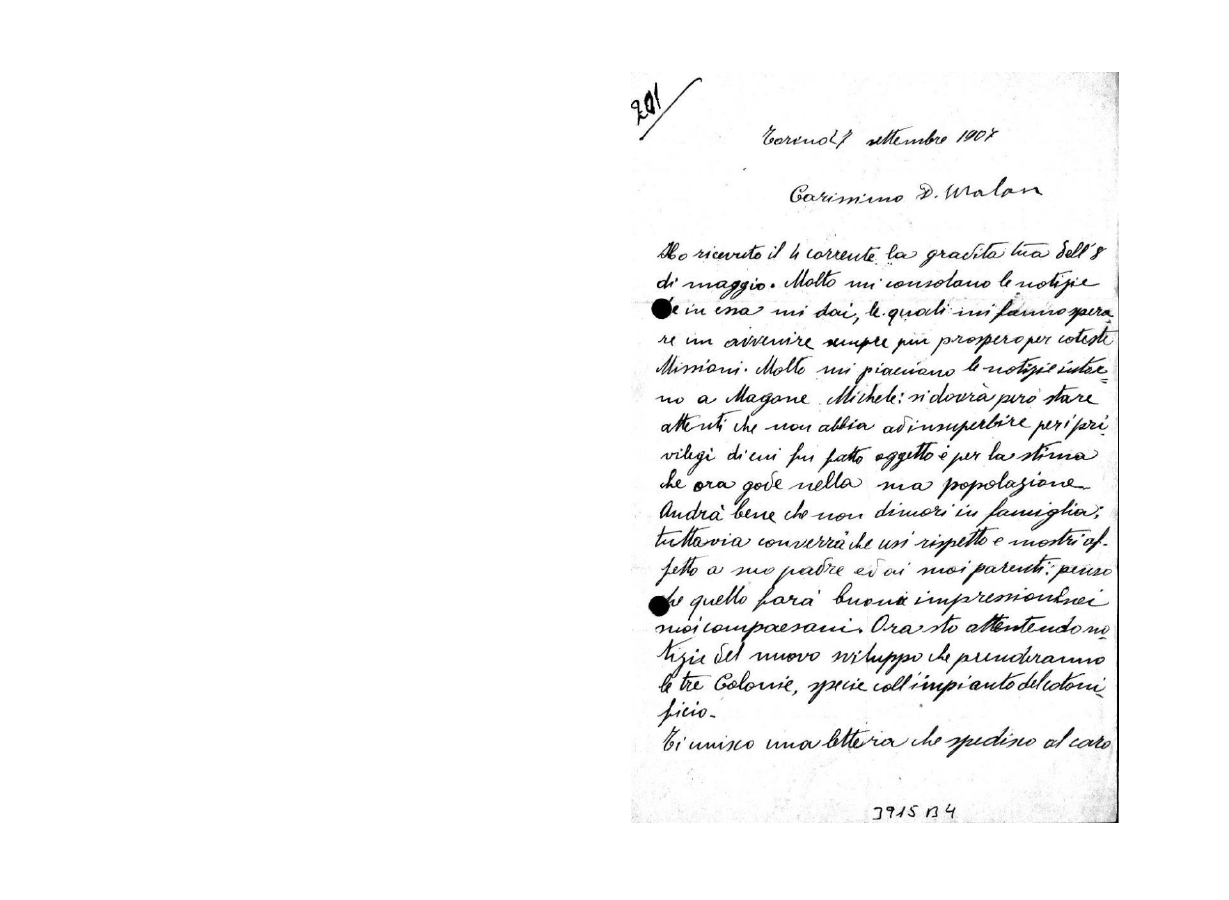 201
Torino 27 settembre 1907
Carissimo D. Malan
Ho ricevuto il 4 corrente la gradita tua dell'8
di maggio. Molto mi consolano le notizie
che in essa mi dai, le quali mi fanno spera-
re un avvenire sempre più prospero per coteste
Missioni. Molto mi piacciono le notizie intor=
no a Magone Michele: si dovrà però stare
attenti che non abbia ad insuperbire per i pri-
vilegi di cui fu fatto oggetto e per la stima
che ora gode nella sua popolazione.
Andrà bene che non dimori in famiglia;
tuttavia converrà che usi rispetto e mostri af-
fetto a suo padre ed ai suoi parenti: penso
che quello farà buona impressione nei
suoi compaesani. Ora sto attendendo no-
tizie del nuovo sviluppo che prenderanno
le tre Colonie, specie coll'impianto del cotoni-
ficio.
Ti unisco una lettera che spedisco al caro
3915 B 4